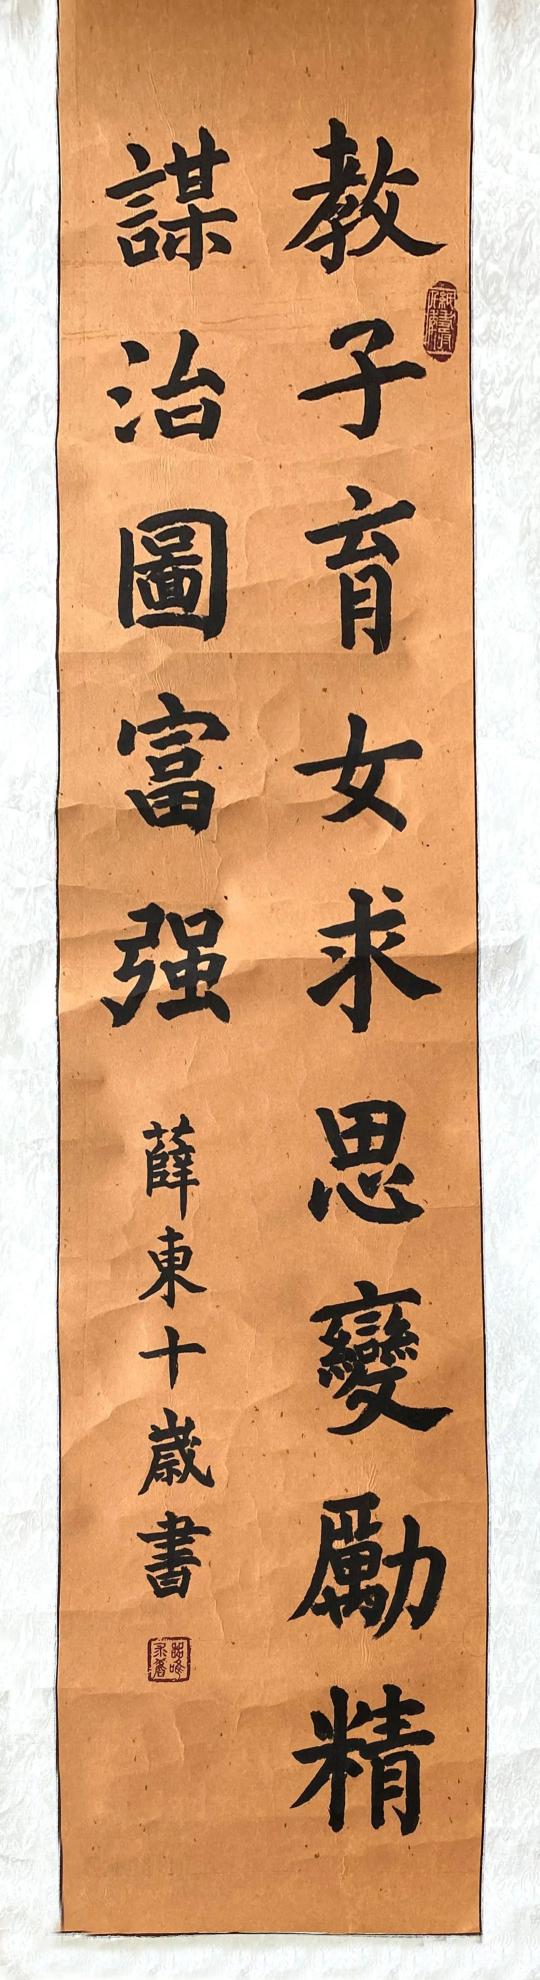 教子育女求思變勵精
謀治圖富强
薛東十歲書